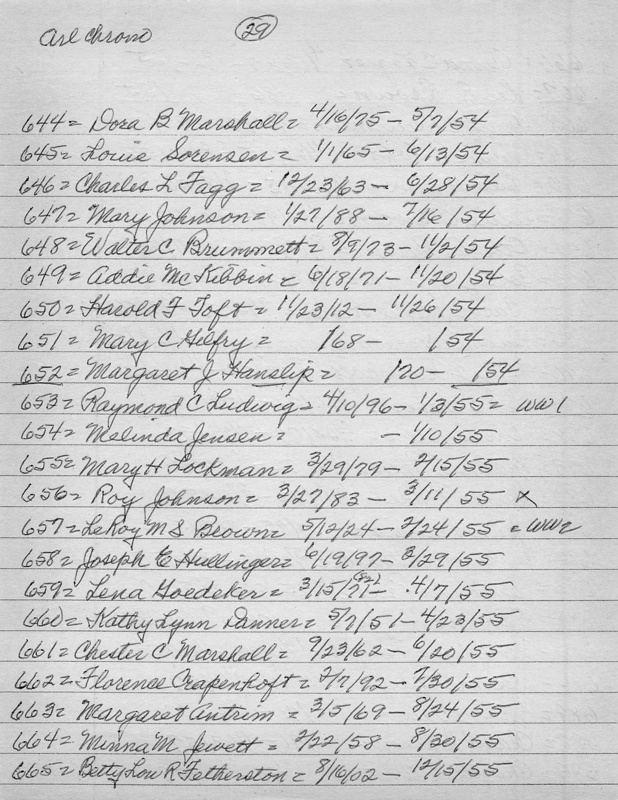 Arl Chrono 29
644= Dora B Marshall= 4/16/75 - 5/7/54
645= Louie Sorensen= 1/1/65 - 6/13/54
646= Charles L Fagg= 12/23/63 - 6/28/54
647= Mary Johnson= 1/27/88 - 7/16/54
648= Walter C Brummett= 8/9/73 - 11/2/54
649= Addie McKibbin= 6/18/71 - 11/20/54
650= Harold F Toft= 11/23/12 - 11/26/54
651= Mary C Gilfry= /68 - /54
652= Margaret J Hanslip= /70 - /54
653= Raymond C Ludwig= 4/10/96 - 1/3/55= WW1
654= Melinda Jensen= - 1/10/55
655= Mary H Lockman= 3/29/79 - 2/15/55
656= Roy Johnson= 3/27/83 - 3/11/55 x
657= LeRoy M S Brown= 5/12/24 - 2/24/55 = WW2
658= Joseph E Hullinger= 6/19/97 - 3/29/55
659= Lena Goedeker= 3/15/77 (82) - 4/7/55
660= Kathy Lynn Danner= 5/7/51 - 4/23/55
661= Chester C Marshall= 9/23/62 - 6/20/55
662= Florence Crapenhoft= 2/7/92 - 7/30/55
663= Margaret Antrim= 3/5/69 - 8/24/55
664= Minna M Jewett= 2/22/58 - 8/30/55
665= Betty Lou R Fetherston= 8/16/02 - 12/15/55